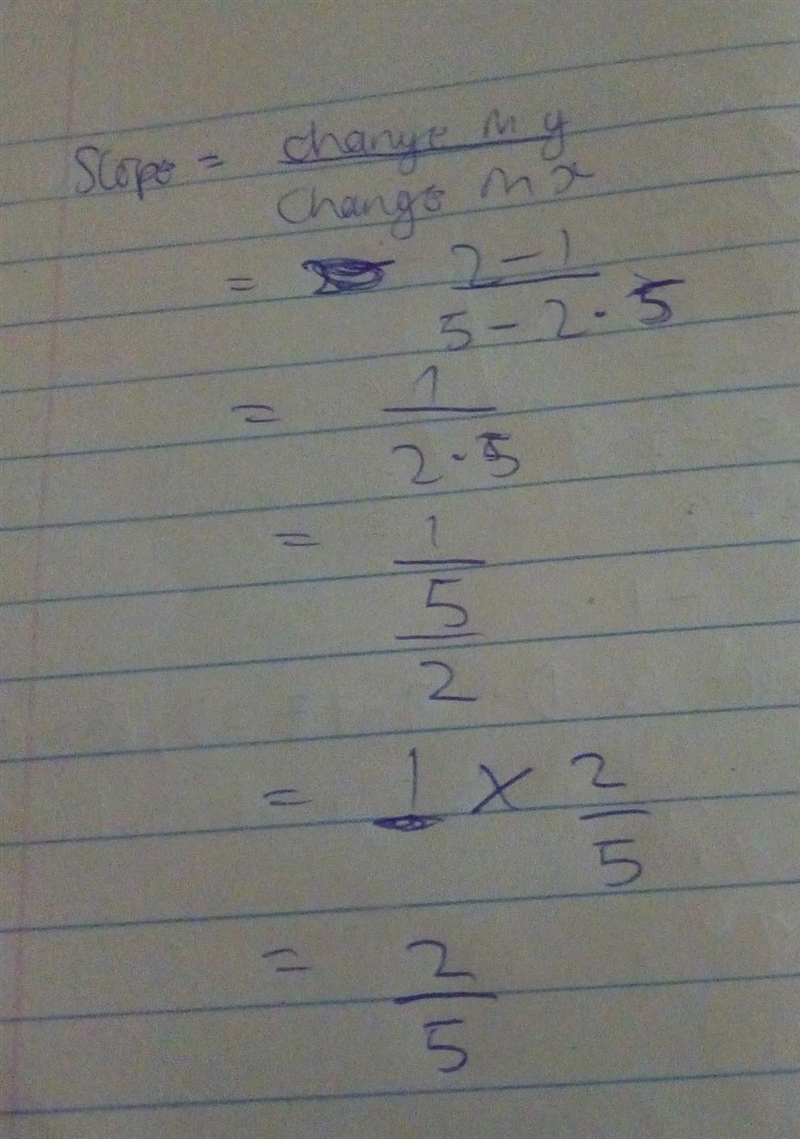 Slope = change in y / change in x
= 2 - 1 / 5 - 2.5
= 1 / 2.5
= 1 / 5 / 2
= 1 × 2 / 5
= 2 / 5